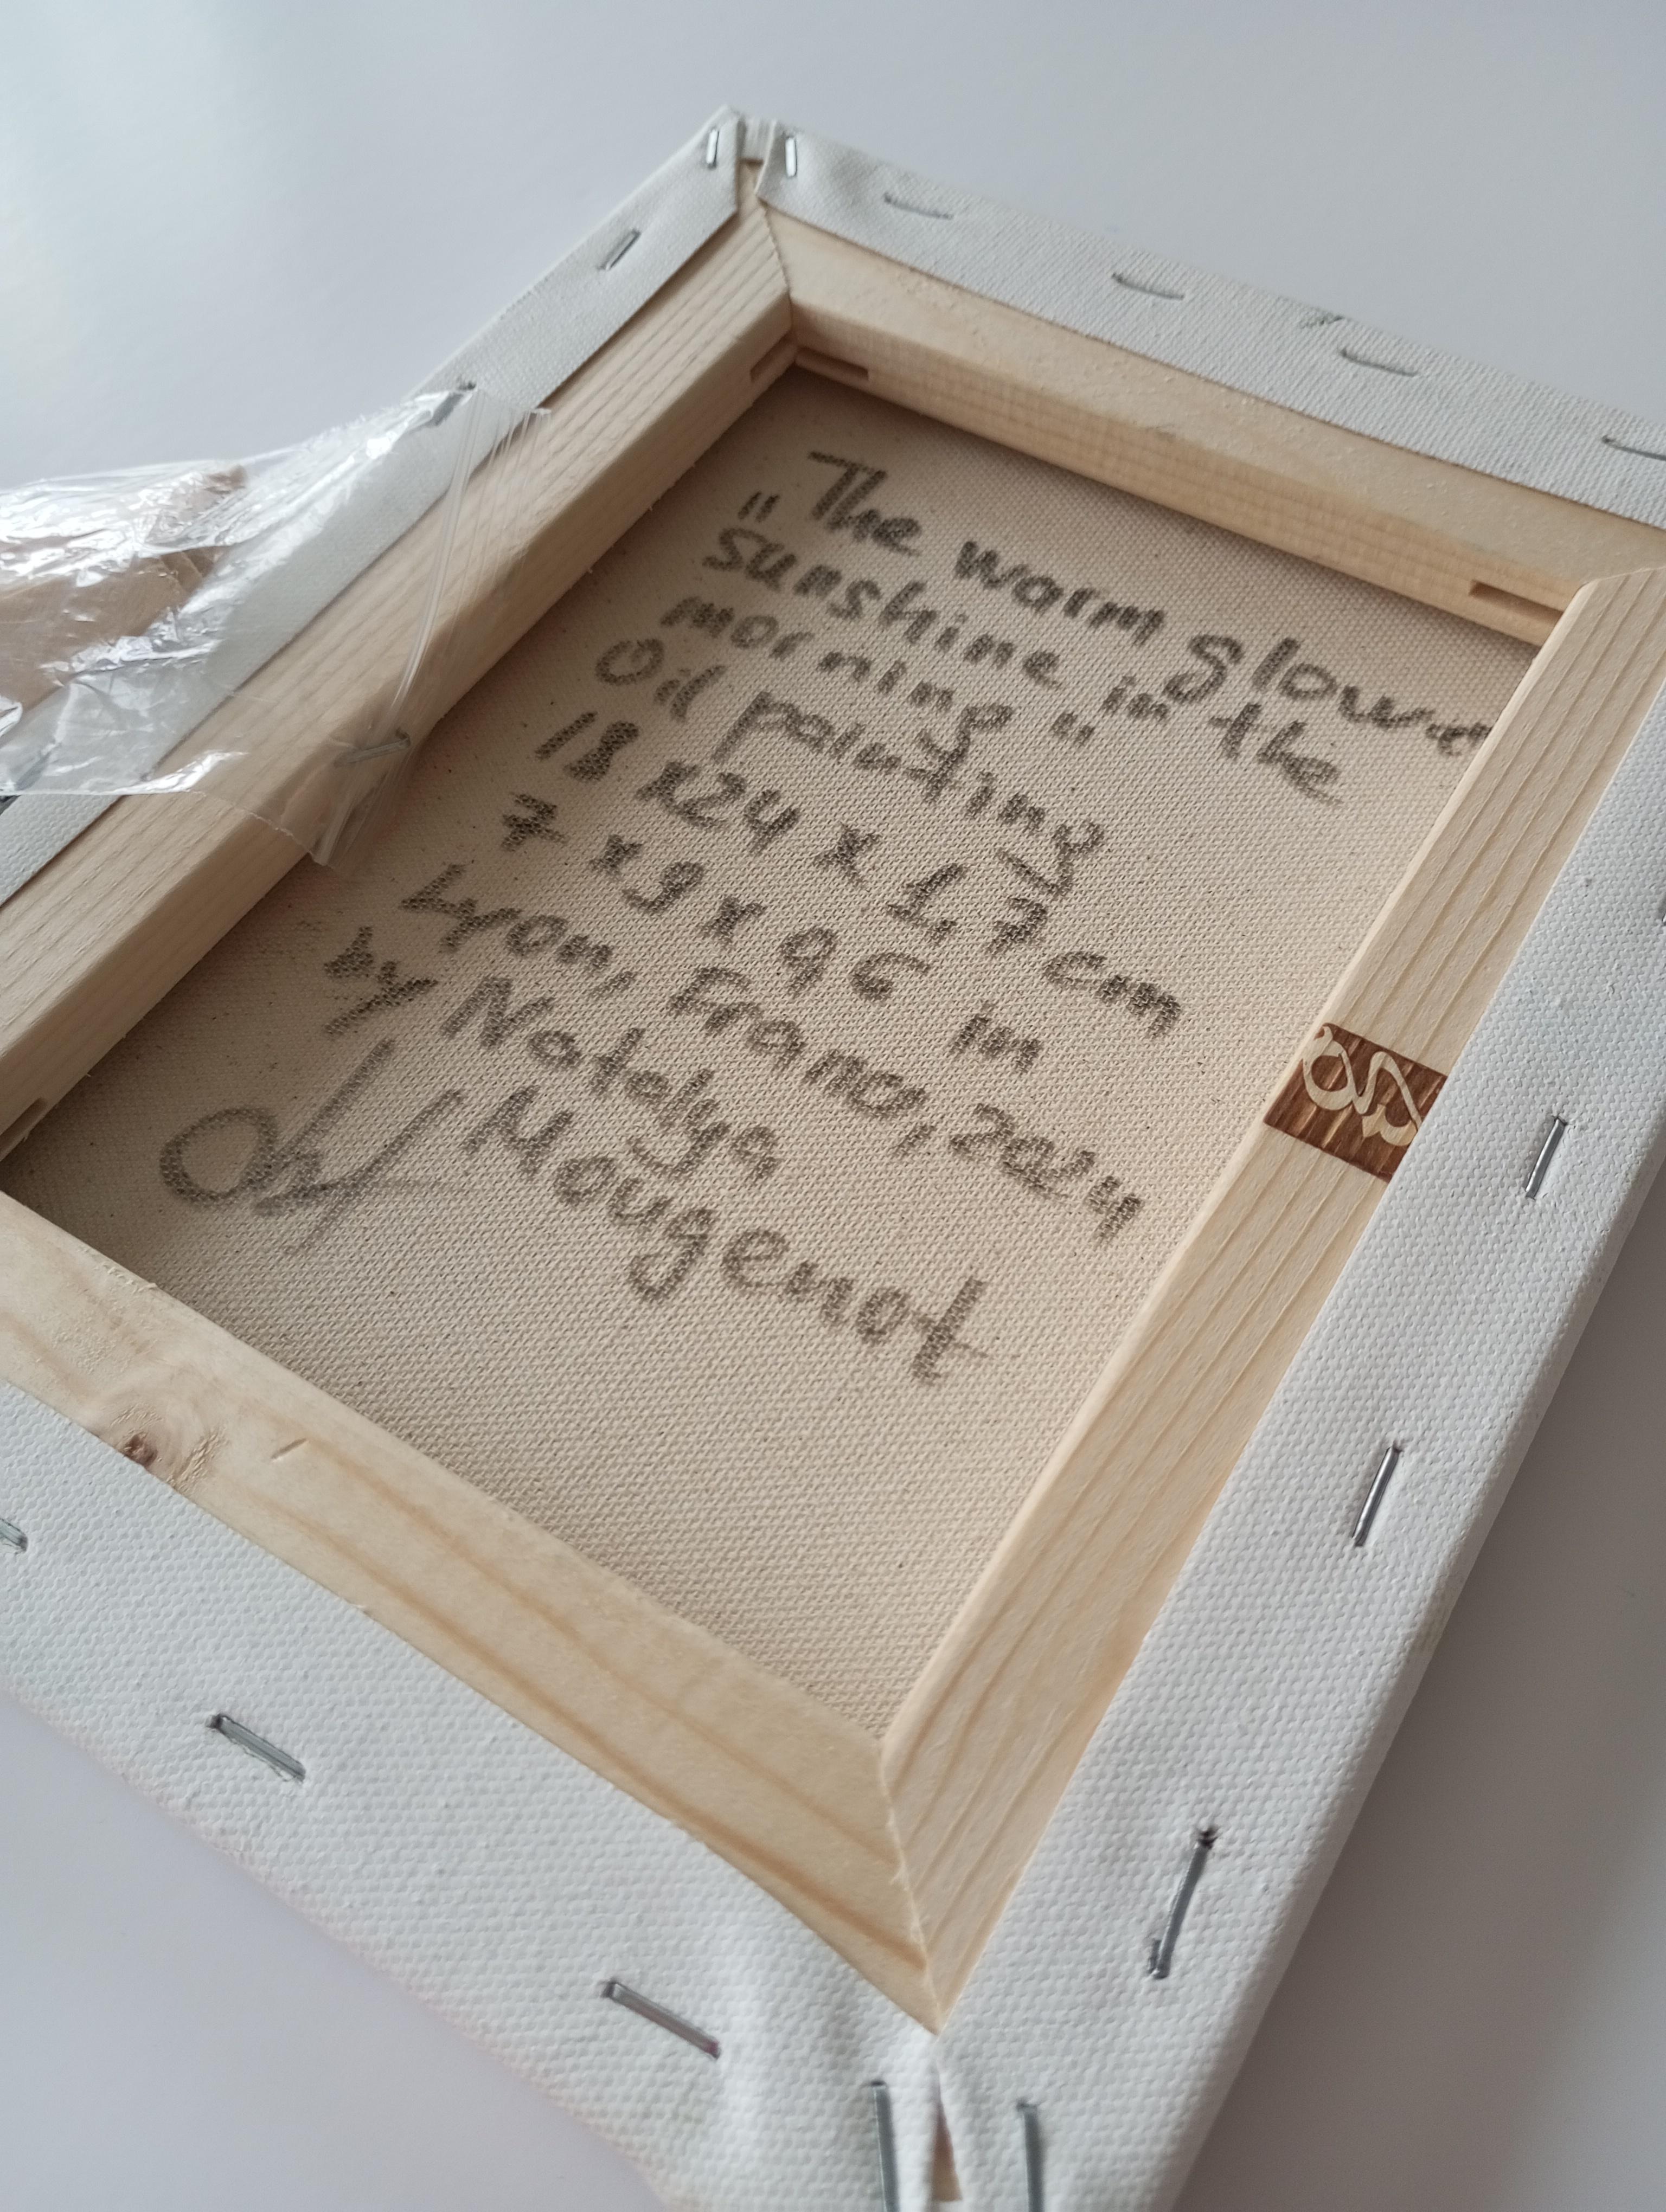 "The warm glowe
sunshine in the
morning"
Oil painting
18 x24 x 1,7 cm
7 x9 x 0,6 in
Lyon, France, 2024
by Natalya
Mougenot